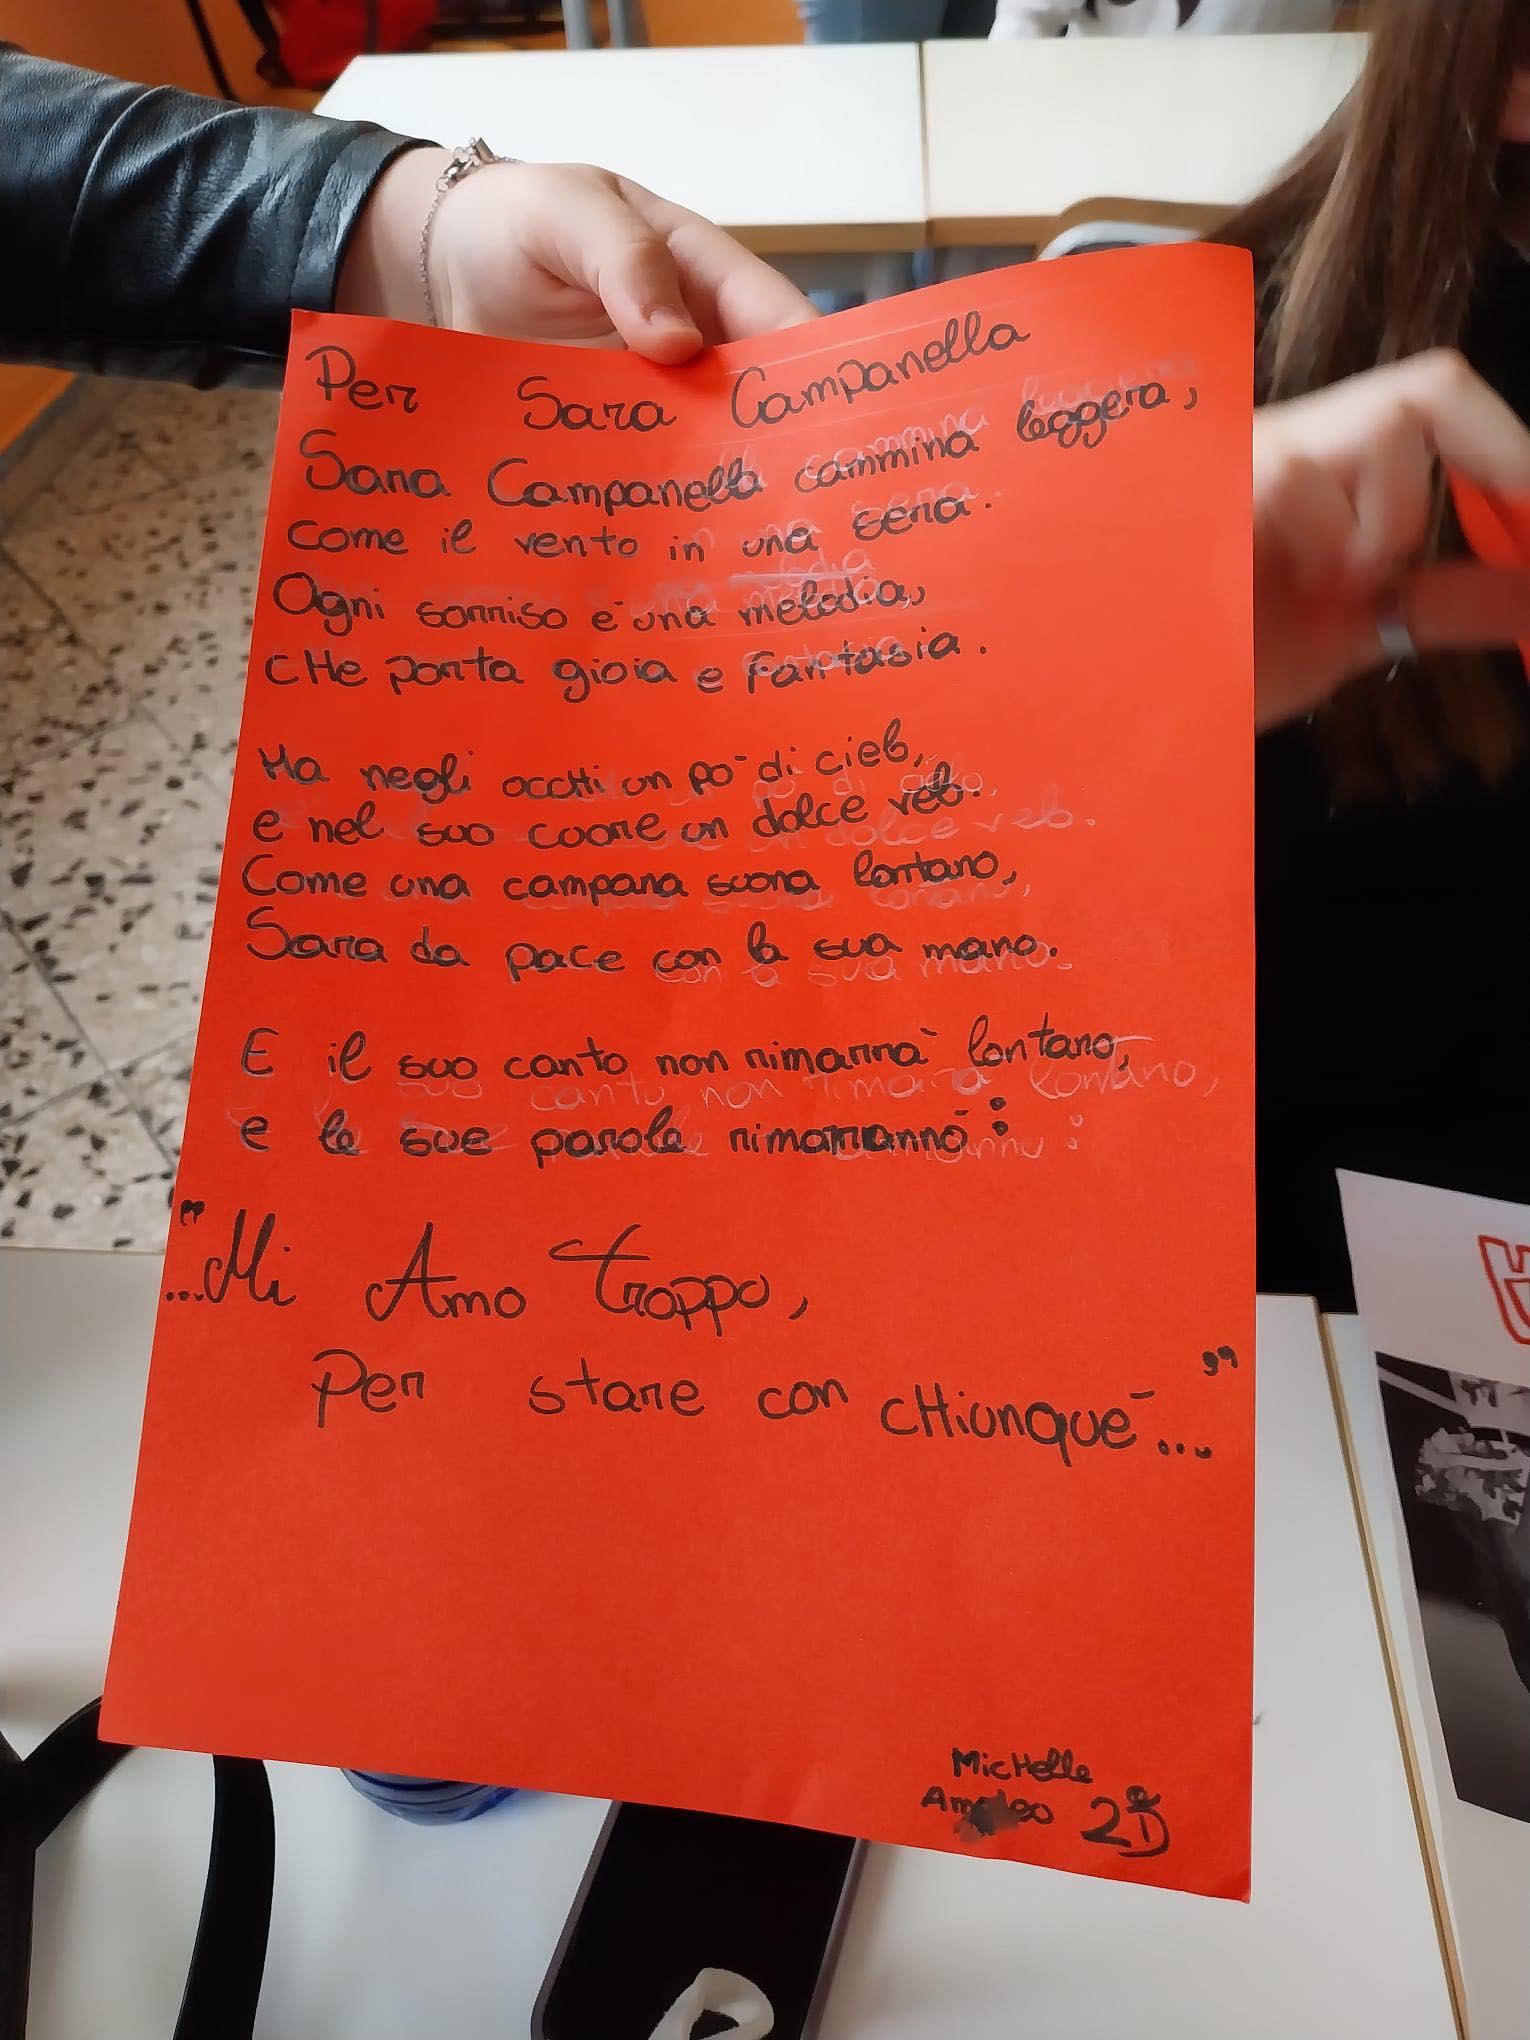 Per Sara Campanella
Sara Campanella cammina leggera,
come il vento in una sera.
Ogni sorriso è una melodia,
cHe porta gioia e Fantasia.
Ha negli occHi un pò di cielo,
e nel suo cuore un dolce velo.
Come una campana suona lontano,
Sara da pace con la sua mano.
E il suo canto non rimarrà lontano,
e le sue parole rimarranno:
"...Mi Amo troppo,
Per stare con cHiunque..."
MicHelle
2ªD